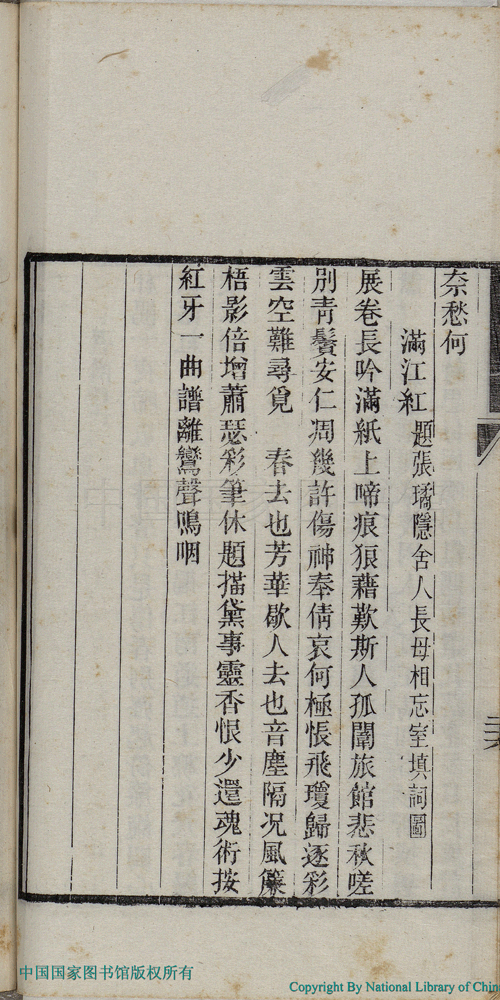 奈愁何
滿江紅 題張璚隱舍人長毋相忘室填詞圖
展卷長吟滿紙上啼痕狼藉歎斯人孤闈旅館悲秋嗟
別青鬢安仁凋幾許傷神奉倩哀何極悵飛瓊歸逐彩
雲空難尋覓 春去也芳華歇人去也音塵隔况風簾
梧影倍增蕭瑟彩筆休題描黛事靈香恨少還魂術按
紅牙一曲譜離鸞聲嗚咽
中国国家图书馆版权所有
Copyright By National Library of Chin